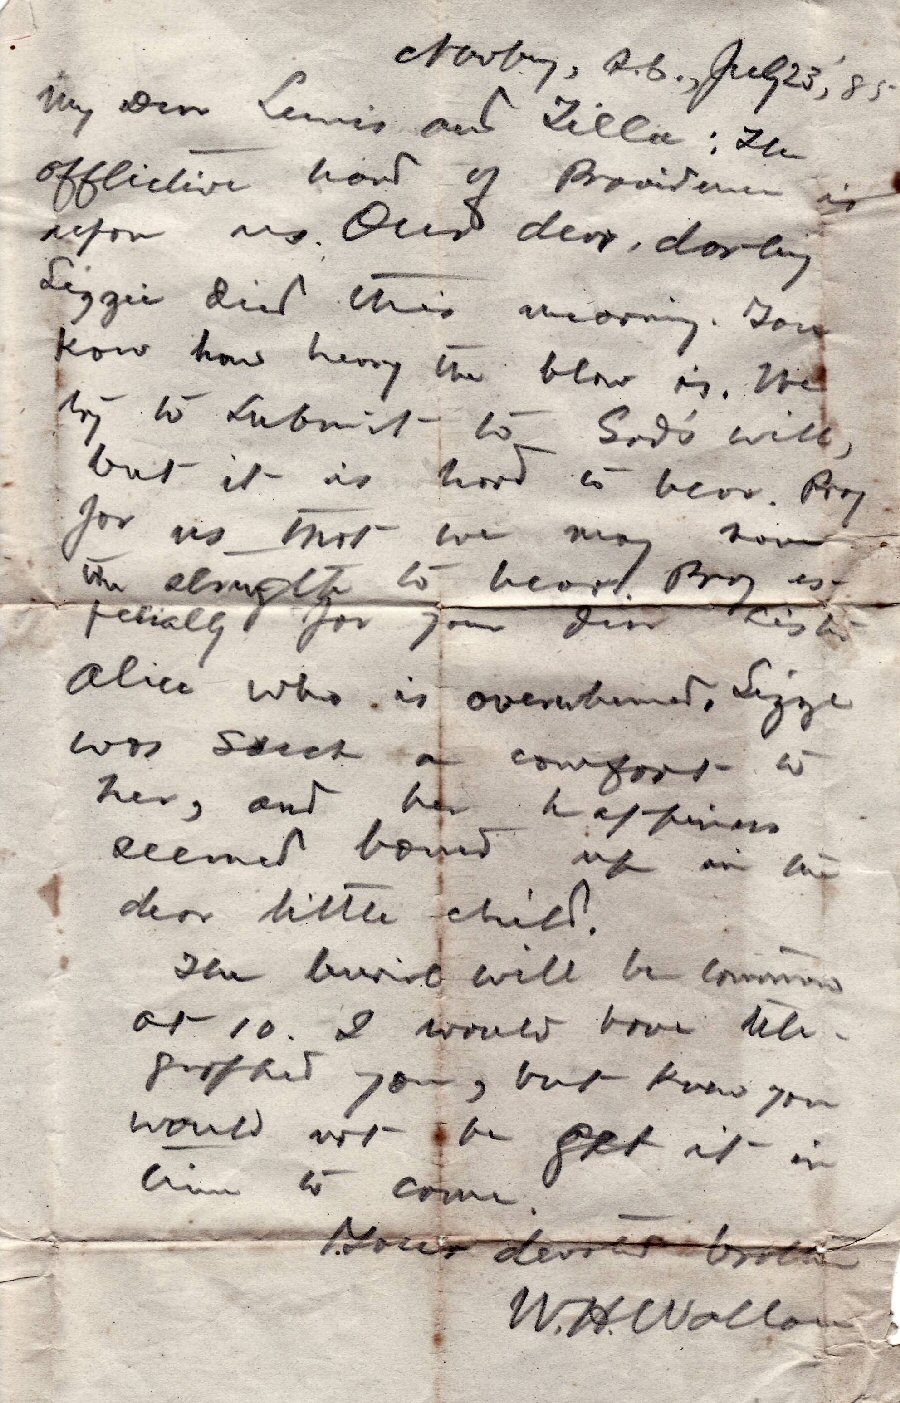 Newberry, S.C., July 23, '85
My Dear Lewis and Zilla: The
afflictive hand of Providence is
upon us. Our dear, darling
Lizzie died this morning. You
know how heavy the blow is. We
try to submit to God's will,
but it is hard to bear. Pray
for us that we may have
the strength to bear. Pray es-
pecially for your dear sister
Alice who is overwhelmed. Lizzie
was such a comfort to
her, and her happiness
seemed bound up in the
dear little child.
The burial will be tomorrow
at 10. I would have tele-
graphed you, but knew you
would not be get it in
time to come.
Your devoted brother
W. H. Wallace